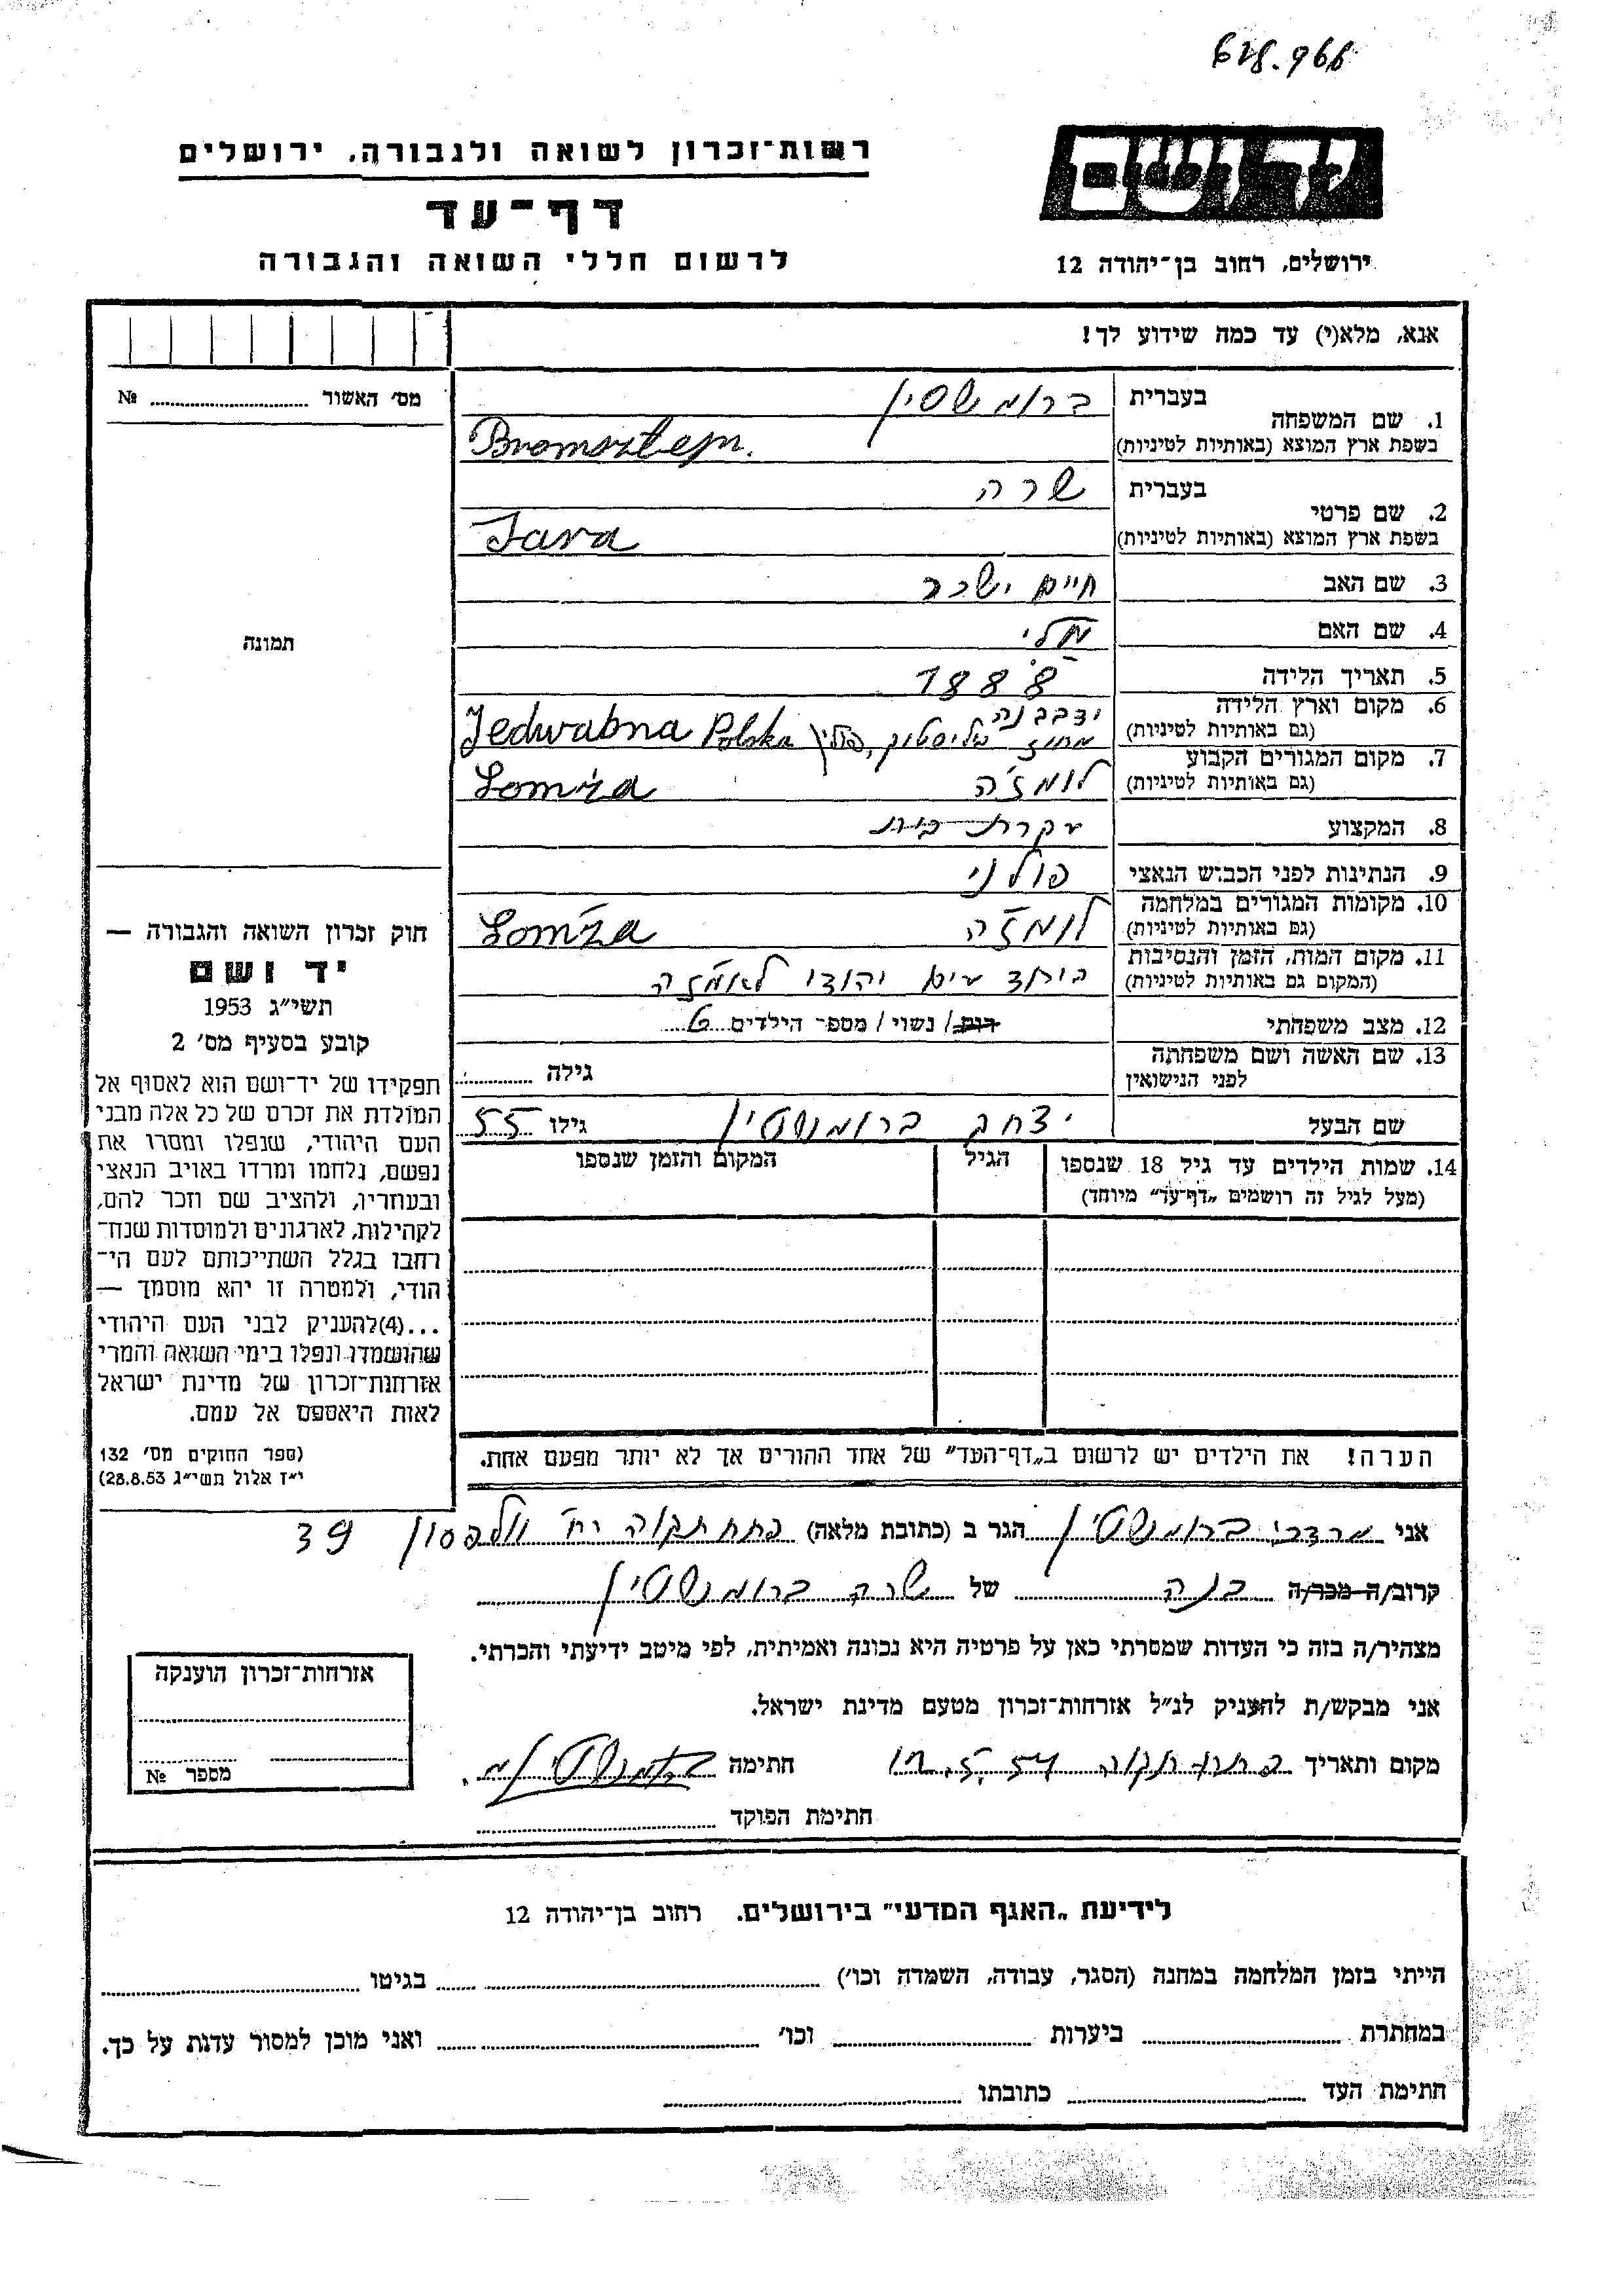 618.966
יד ושם
רשות־זכרון לשואה ולגבורה, ירושלים
דף־עד
לרשום חללי השואה והגבורה
ירושלים, רחוב בן־יהודה 12
אנא, מלא(י) עד כמה שידוע לך!
מס׳ האשור ........ №
תמונה
1. שם המשפחה
בעברית ברומשטין
בשפת ארץ המוצא (באותיות לטיניות) Bromsztejn.
2. שם פרטי
בעברית שרה
בשפת ארץ המוצא (באותיות לטיניות) Sara
3. שם האב חיים ישכר
4. שם האם
5. תאריך הלידה 1888
6. מקום וארץ הלידה ידבבנה
(גם באותיות לטיניות) מחוז ביליסטוק, פולין Jedwabna Polska
7. מקום המגורים הקבוע
(גם באותיות לטיניות) לומז׳ה Łomża
8. המקצוע עקרת בית
9. הנתינות לפני הכבוש הנאצי פולני
10. מקומות המגורים במלחמה
(גם באותיות לטיניות) לומז׳ה Łomża
11. מקום המות, הזמן והנסיבות
(המקום גם באותיות לטיניות) ביחד עים יהודי לאמז׳ה
12. מצב משפחתי רוק/ נשוי/ מספר הילדים 6
13. שם האשה ושם משפחתה
לפני הנישואין גילה ........
שם הבעל יצחק ברומשטין גילו 55
14. שמות הילדים עד גיל 18 שנספו הגיל המקום והזמן שנספו
(מעל לגיל זה רושמים „דף־עד״ מיוחד)
הערה! את הילדים יש לרשום ב„דף־העד״ של אחד ההורים אך לא יותר מפעם אחת.
חוק זכרון השואה והגבורה —
יד ושם
תשי״ג 1953
קובע בסעיף מס׳ 2
תפקידו של יד־ושם הוא לאסוף אל
המולדת את זכרם של כל אלה מבני
העם היהודי, שנפלו ומסרו את
נפשם, נלחמו ומרדו באויב הנאצי
ובעוזריו, ולהציב שם וזכר להם,
לקהילות, לארגונים ולמוסדות שנח־
רבו בגלל השתייכותם לעם הי־
הודי, ולמטרה זו יהא מוסמך —
...(4)להעניק לבני העם היהודי
שהושמדו ונפלו בימי השואה והמרי
אזרחות־זכרון של מדינת ישראל
לאות היאספם אל עמם.
(ספר החוקים מס׳ 132
י״ז אלול תשי״ג 28.8.53)
אני מרדכי ברומשטין הגר ב (כתובת מלאה) פתח תקוה רח׳ וולפסון 39
קרוב/ה מכר/ה בנה של שרה ברומשטין
מצהיר/ה בזה כי העדות שמסרתי כאן על פרטיה היא נכונה ואמיתית, לפי מיטב ידיעתי והכרתי.
אני מבקש/ת להעניק לנ״ל אזרחות־זכרון מטעם מדינת ישראל.
מקום ותאריך פתח תקוה חתימה ברומשטין מ.
חתימת הפוקד ........
אזרחות־זכרון הוענקה
מספר №
לידיעת „האגף המדעי״ בירושלים. רחוב בן־יהודה 12
הייתי בזמן המלחמה במחנה (הסגר, עבודה, השמדה וכו׳) ........ בגיטו ........
במחתרת ........ ביערות ........ וכו׳ ........ ואני מוכן למסור עדות על כך.
חתימת העד ........ כתובתו ........